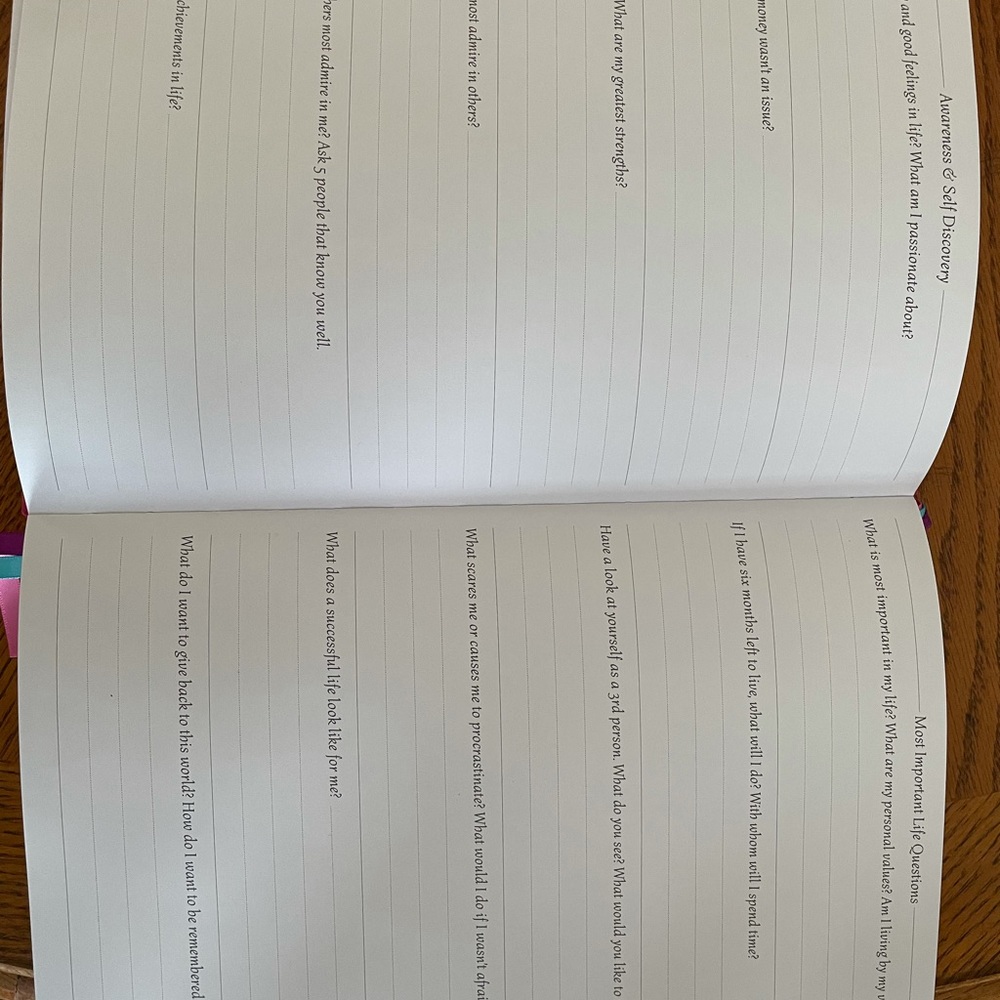 Awareness & Self Discovery
and good feelings in life? What am I passionate about?
money wasn't an issue?
What are my greatest strengths?
most admire in others?
most admire in me? Ask 5 people that know you well.
in life?
Most Important Life Questions
What is most important in my life? What are my personal values? Am I living by my
If I have six months left to live, what will I do? With whom will I spend time?
Have a look at yourself as a 3rd person. What do you see? What would you like to
What scares me or causes me to procrastinate? What would I do if I wasn't
What does a successful life look like for me?
What do I want to give back to this world? How do I want to be remembered